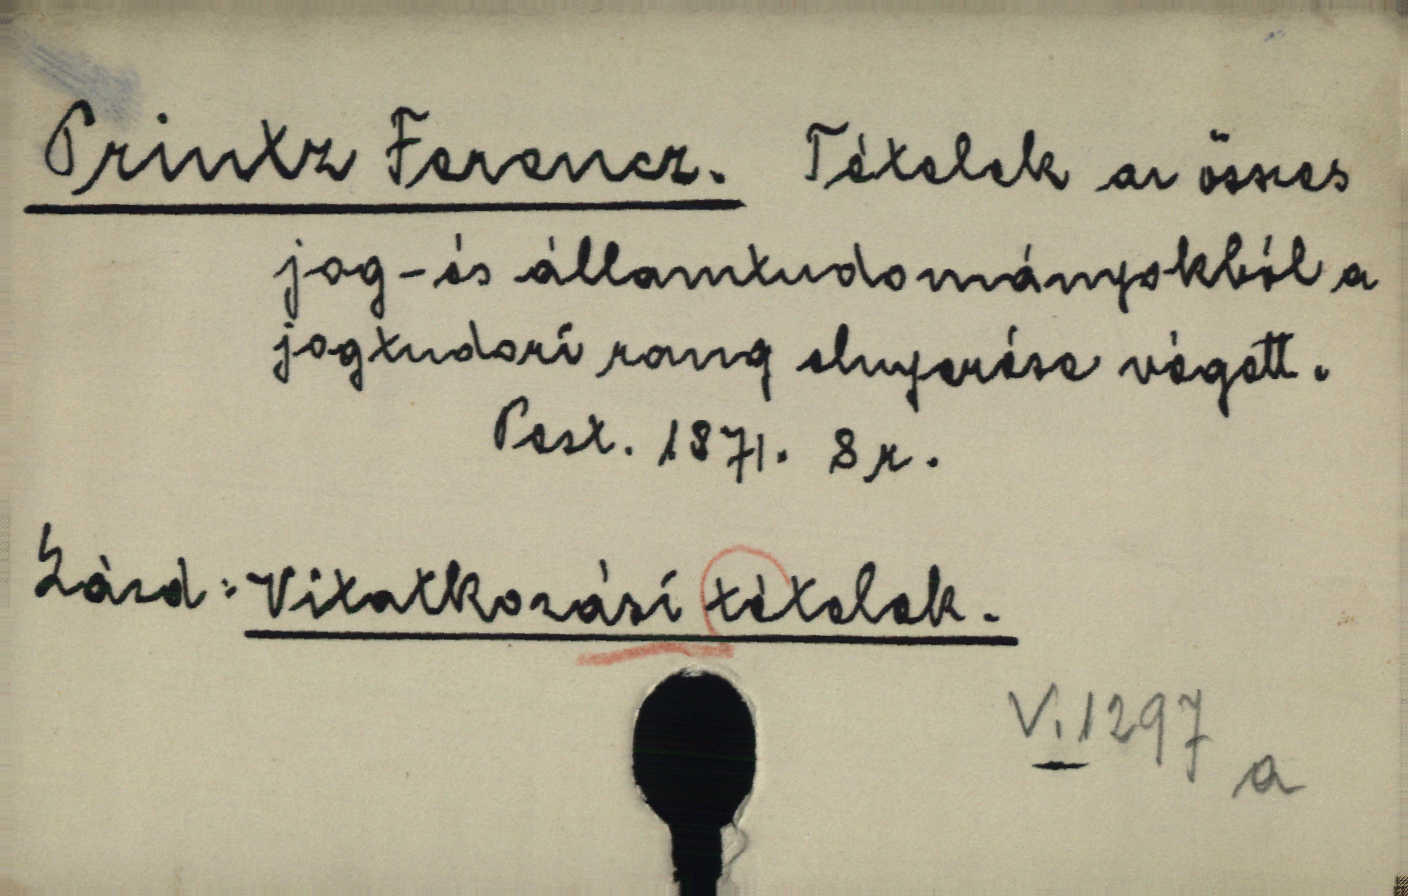 Printz Ferencz. Tételek az összes
jog-és államtudományokból a
jogtudori rang elnyerése végett.
Pest. 1871. 8r.
Lásd: Vitatkozási tételek.
V. 1297
a